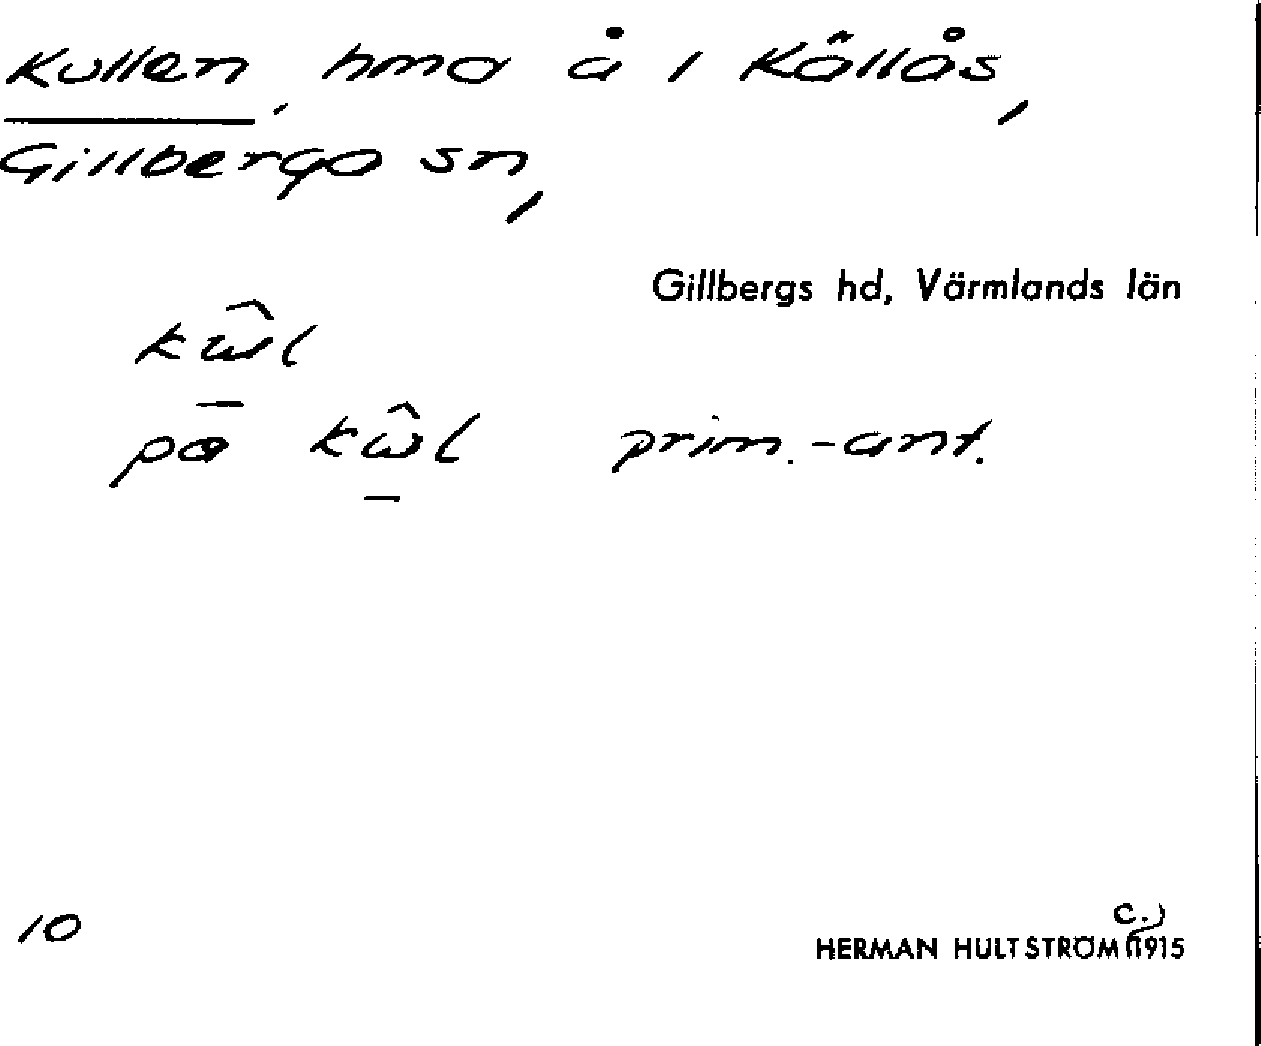 Kullen, hmd å 1 Källås,
Gillbergs sn,
Gillbergs hd, Värmlands län
prim.-ant.
10
c.)
HERMAN HULTSTRÖM 1915